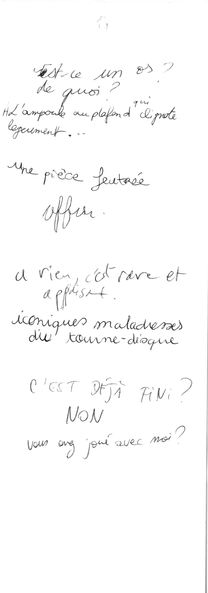 Est-ce un os ?
de quoi ?
L'ampoule au plafond qui clignote
légèrement...
une pièce feutrée
rien, c'est rare et
iconiques maladresses
du tourne-disque
C'EST DÉJÀ FINI ?
NON
vous avez joué avec moi ?